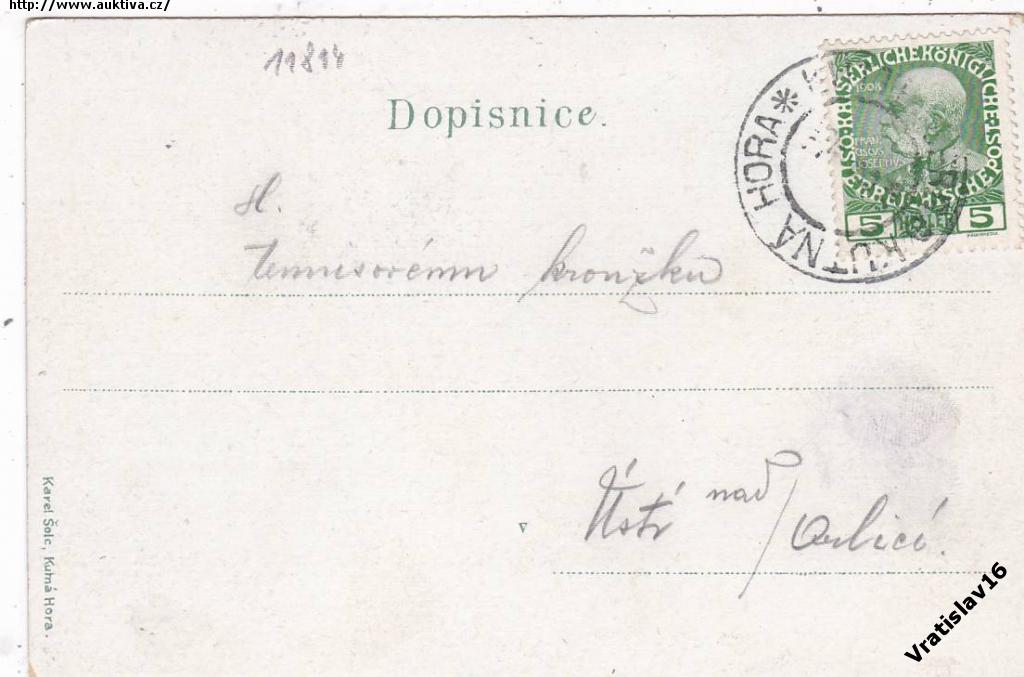 http://www.auktiva.cz/
11814
Dopisnice.
KUTNÁ HORA
KAISERLICHE KÖNIGLICHE ÖSTERREICHISCHE
1908
FRAN
CISCVS
IOSEPHVS
5 5
sl.
tennisovému kroužku
v
Ústí nad Orlicí.
Karel Šolc, Kutná Hora.
Vratislav16